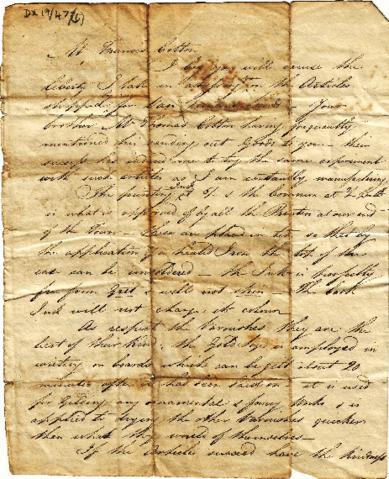 DX 19/47/(6)
Mr Francis Cotton
I beg you will excuse the
liberty I take in on the Articles
shipped for Van Your
brother Mr Thomas Cotton having frequently
mentioned his sending out Goods to you — their
success has induced me to try the same experiment
with such articles as I am constantly manufacturing
The printing Ink at 5/- is the Common at 2/-
is what is approved of by all the Printers at our end
of the Town — are in so that by
the application of a heated Iron the top of the
can be unsoldered — the Ink is perfectly
free from & will not — The best
Ink will not change its colour
As respect the Varnishes they are the
best of their kind. the Gold size is employed in
writing on boards which can be gilt about 20
minutes after it has been on — it is used
for Gilding any ornamental & fancy works & is
applied to drying the other Varnishes quicker
than what they would of themselves —
If the Articles succeed have the kindness